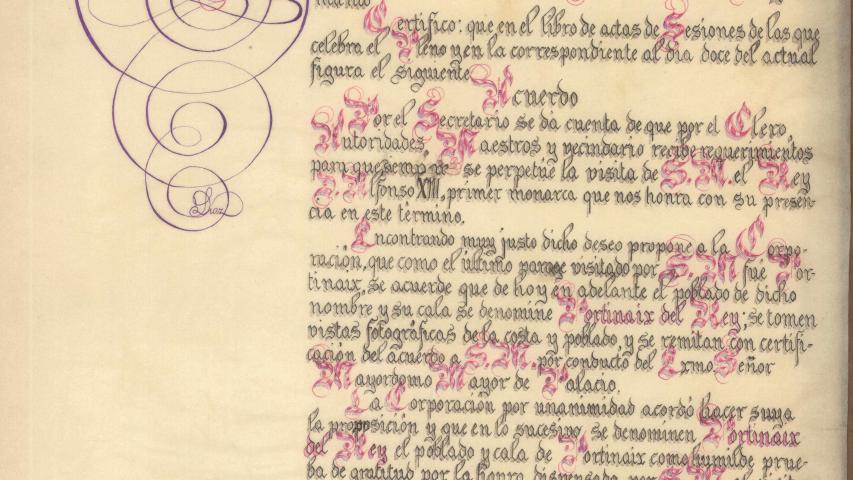 Certifico: que en el libro de actas de Sesiones de las que
celebra el Pleno y en la correspondiente al dia doce del actual
figura el siguiente
Acuerdo
Por el Secretario se da cuenta de que por el Clero,
Autoridades, Maestros y vecindario recibe requerimientos
para que siempre se perpetúe la visita de S.M. el Rey
D. Alfonso XIII, primer monarca que nos honra con su presen-
cia en este término.
Encontrando muy justo dicho deseo propone a la Corpo-
ración, que como el último paraje visitado por S.M. fué Por-
tinaix, se acuerde que de hoy en adelante el poblado de dicho
nombre y su cala se denomine Portinaix del Rey; se tomen
vistas fotográficas de la costa y poblado, y se remitan con certifi-
cación del acuerdo a S.M. por conducto del Exmo Señor
Mayordomo Mayor de Palacio.
La Corporación por unanimidad acordó hacer suya
la proposición y que en lo sucesivo se denominen Portinaix
del Rey el poblado y cala de Portinaix como humilde prue-
ba de gratitud por la honra dispensada por S.M.
Díaz